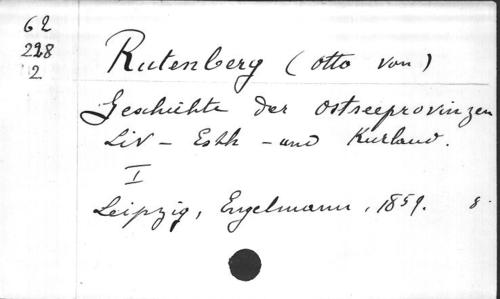 62
228
2
Rutenberg (Otto von)
Geschichte der Ostseeprovinzen
Liv- Esth- und Kurland.
I
Leipzig, Engelmann, 1859. 8.